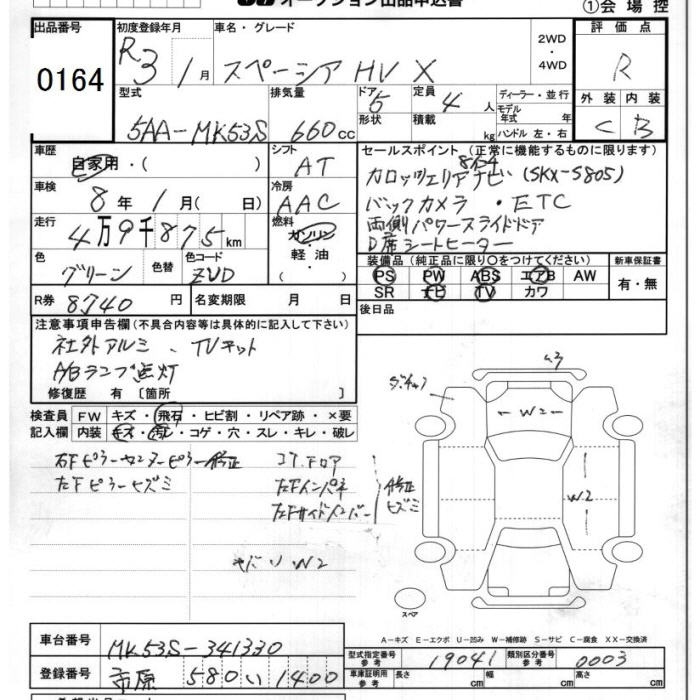 オークション出品申込書
①会場控
出品番号 初度登録年月 車名・グレード 評価点
0164 R3 1月 スペーシア HV X 2WD・4WD R
型式 排気量 ドア 5 定員 4人 ディーラー・並行 外装 内装
5AA-MK53S 660cc 形状 積載 kg モデル年式 年 ハンドル 左・右 C B
車歴 自家用・( ) シフト AT セールスポイント(正常に機能するものに限る)
車検 8年1月( 日) 冷房 AAC カロッツェリア8インチナビ(SKX-S805)
走行 4万9千875km 燃料 ガソリン・軽油・( ) バックカメラ・ETC
両側パワースライドドア
D席シートヒーター
色 グリーン 色替 色コード ZVD 装備品(純正品に限り○をつけてください) 新車保証書
PS PW ABS エアB AW 有・無
SR ナビ TV カワ
R券 8740円 名変期限 月 日 後日品
注意事項申告欄(不具合内容等は具体的に記入して下さい)
社外アルミ、TVキット
A/Bランプ点灯
修復歴 有〔箇所 〕
検査員 FW キズ・飛石・ヒビ割・リペア跡・×要
記入欄 内装 キズ・汚レ・コゲ・穴・スレ・キレ・破レ
右Fピラーセンターピラー修正 コア,Fロア
左Fピラーヒズミ 左Fインパネ
左Fサイドメンバー 修正ヒズミ
W2
W2
W2
スペア
A-キズ E-エクボ U-凹み W-補修跡 S-サビ C-腐食 XX-交換済
車台番号 MK53S-341330
型式指定番号 参考 19041 類別区分番号 参考 0003
登録番号 市原 580 い 1400
車庫証明用 参考 長さ cm 幅 cm 高さ cm